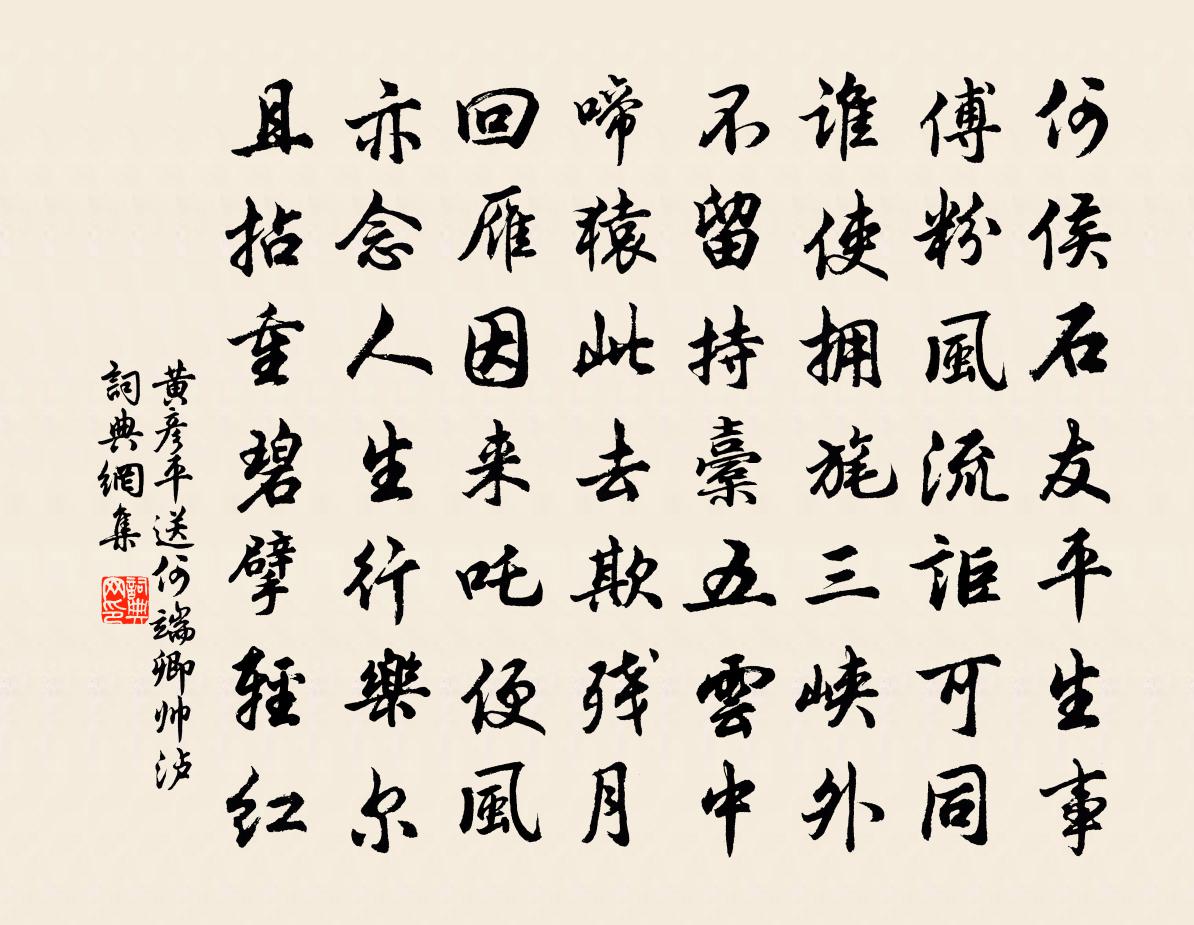 何侯石友平生事
傅粉風流詎可同
谁使拥旄三峡外
不留持橐五雲中
啼猿此去欺残月
回雁因来吒便風
亦念人生行樂尔
且拈重碧擘輕红
黄彦平送何端卿帅泸
詞典網集
詞典网印